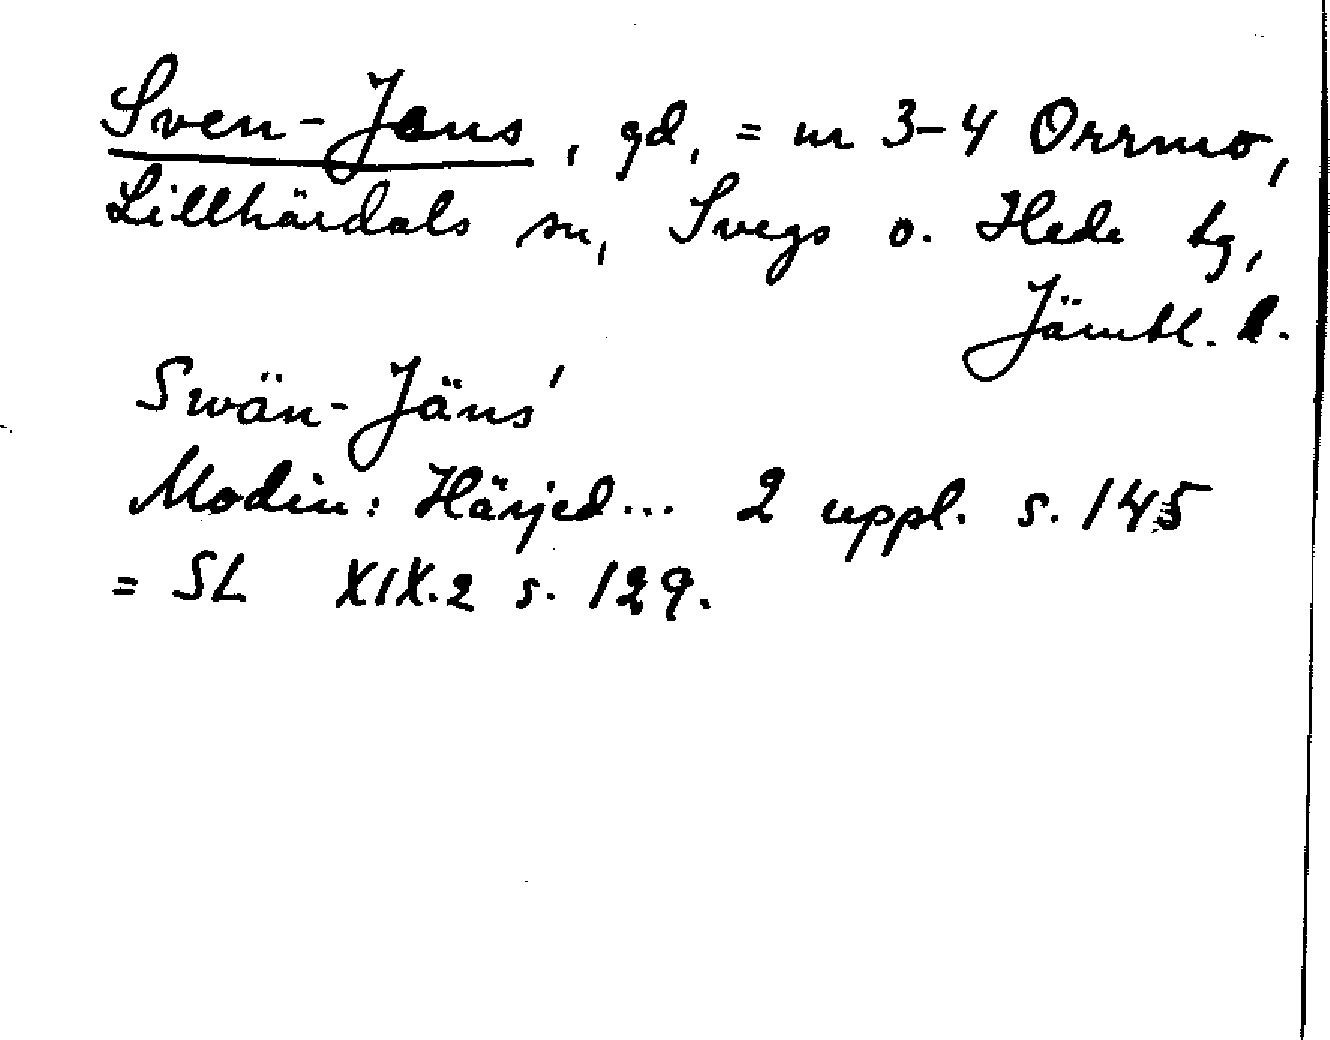 Sven-Jens, gd, = nr 3-4 Orrmo,
Lillhärdals sn, Svegs o. Hede tg,
Jämtl. l.
Swän-Jäns'
Modin: Härjed... 2 uppl. s. 145
= SL XIX.2 s. 129.